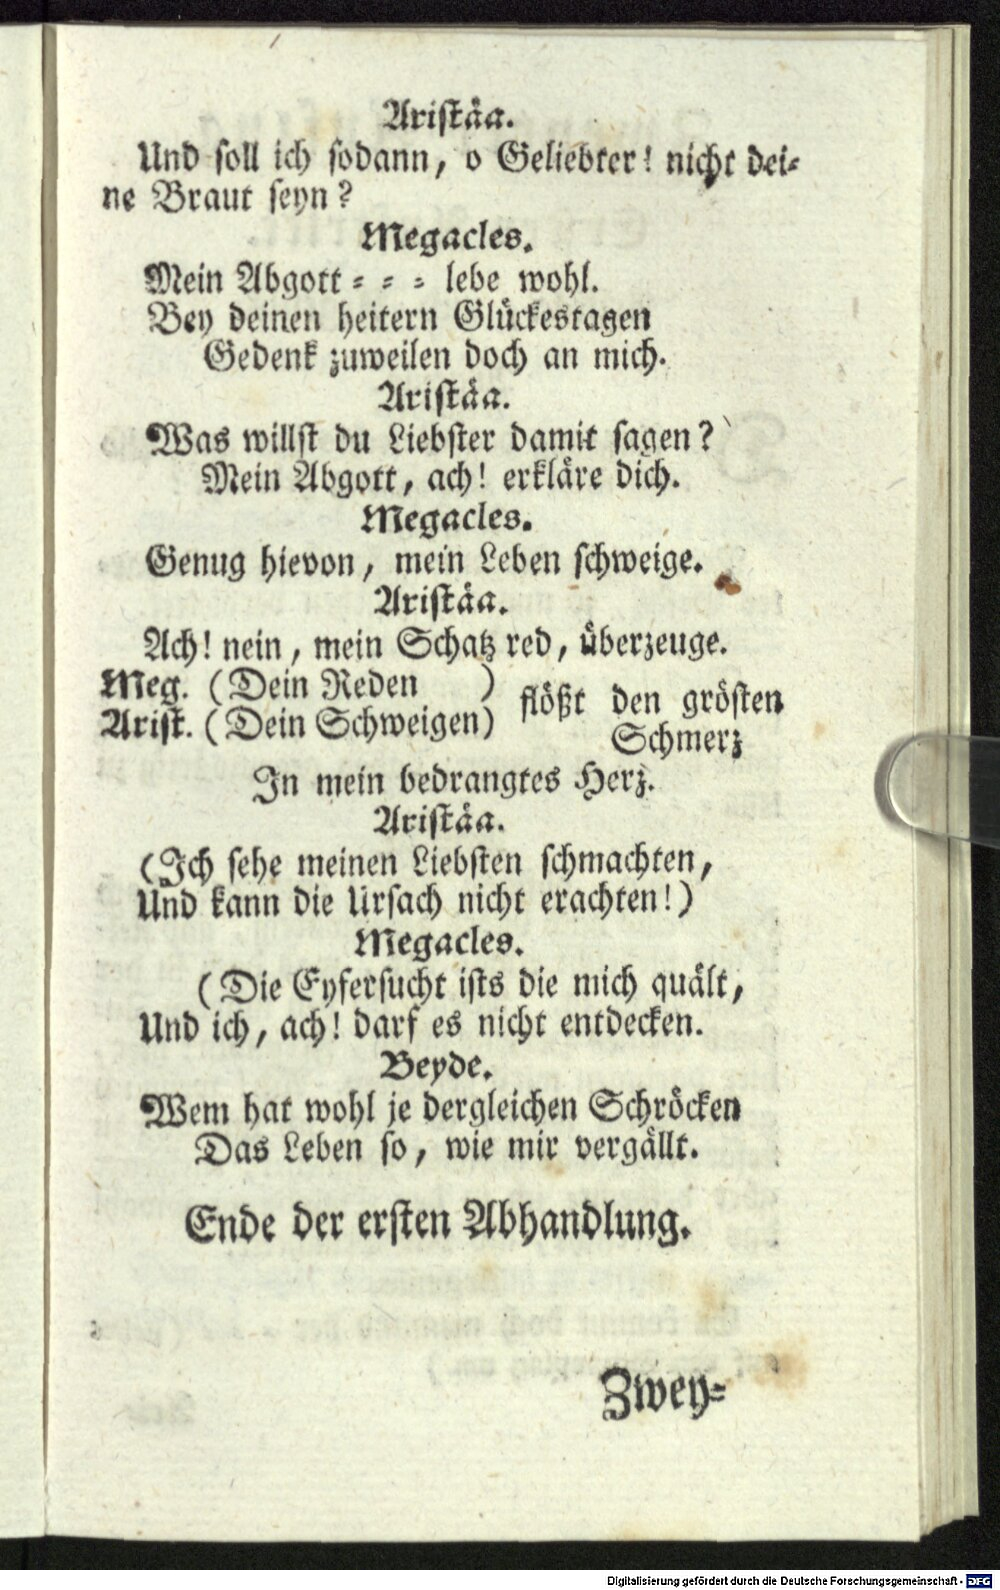 Aristäa.
Und soll ich sodann, o Geliebter! nicht dei-
ne Braut seyn?
Megacles.
Mein Abgott - - - lebe wohl.
Bey deinen heitern Glückestagen
Gedenk zuweilen doch an mich.
Aristäa.
Was willst du Liebster damit sagen?
Mein Abgott, ach! erkläre dich.
Megacles.
Genug hievon, mein Leben schweige.
Aristäa.
Ach! nein, mein Schatz red, überzeuge.
Meg. (Dein Reden )
Arist. (Dein Schweigen)
flößt den grösten
Schmerz
In mein bedrangtes Herz.
Aristäa.
(Ich sehe meinen Liebsten schmachten,
Und kann die Ursach nicht erachten!)
Megacles.
(Die Eyfersucht ists die mich quält,
Und ich, ach! darf es nicht entdecken.
Beyde.
Wem hat wohl je dergleichen Schröcken
Das Leben so, wie mir vergällt.
Ende der ersten Abhandlung.
Zwey-
Digitalisierung gefördert durch die Deutsche Forschungsgemeinschaft - DFG